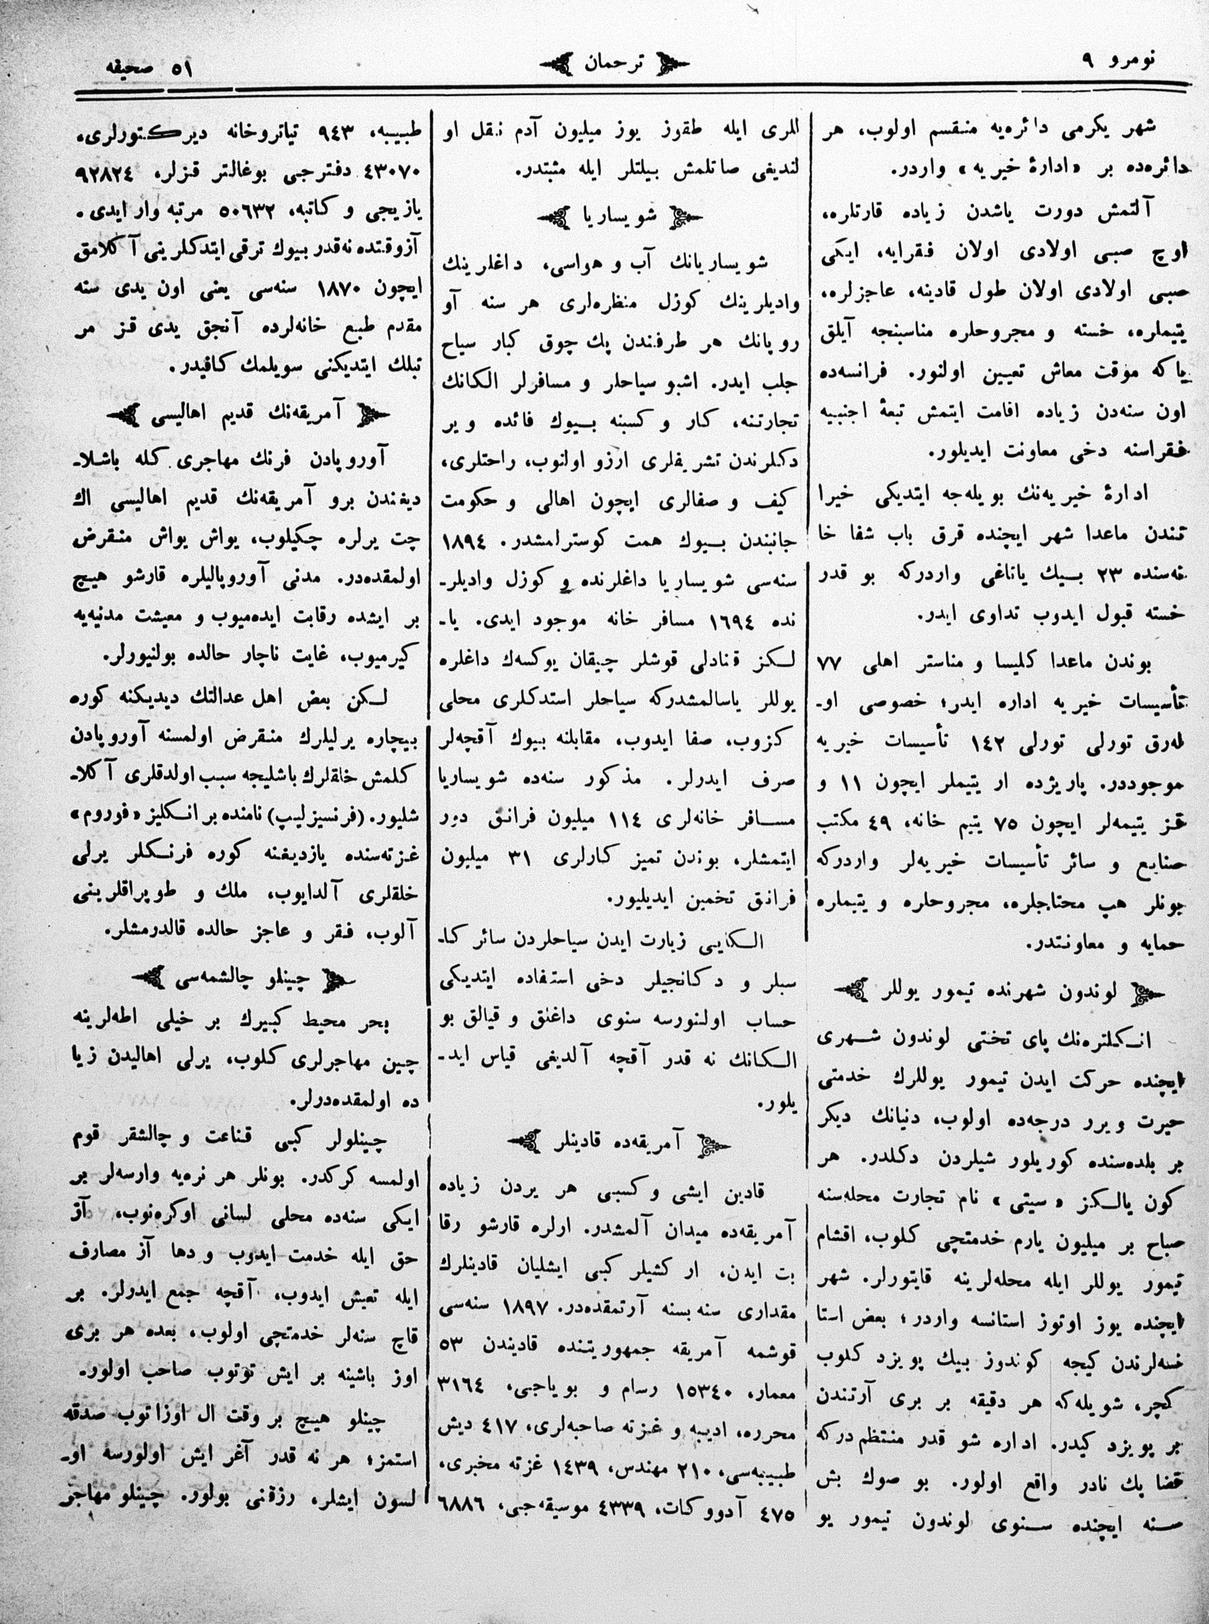 نومرو ٩
ترجمان
٥١ صحيفه
شهر يكرمی دائره‌يه منقسم اولوب، هر
دائره‌ده بر «ادارۀ خيريه» واردر.
آلتمش دورت ياشدن زياده قارتلره،
اوچ صبی اولادی اولان فقرايه، ايكی
صبی اولادی اولان طول قادينه، عاجزلره،
يتيملره، خسته و مجروحلره مناسبنجه آيلق
ياكه موقت معاش تعيين اولنور. فرانسه‌ده
اون سنه‌دن زياده اقامت ايتمش تبعۀ اجنبيه
فقراسنه دخی معاونت ايديلور.
ادارۀ خيريه‌نك بويله‌جه ايتديكی خيرا
تندن ماعدا شهر ايچنده قرق باب شفا خا
نه‌سنده ٢٣ بيك ياتاغی واردركه بو قدر
خسته قبول ايدوب تداوی ايدر.
بوندن ماعدا كليسا و مناستر اهلی ٧٧
تأسيسات خيريه اداره ايدر؛ خصوصی او-
له‌رق تورلی تورلی ١٤٢ تأسيسات خيريه
موجوددر. پاريژده ار يتيملر ايچون ١١ و
قز يتيمه‌لر ايچون ٧٥ يتيم خانه، ٤٩ مكتب
صنايع و سائر تأسيسات خيريه‌لر واردركه
بونلر هپ محتاجلره، مجروحلره و يتيملره
حمايه و معاونتدر.
لوندون شهرنده تيمور يوللر
انكلتره‌نك پای تختی لوندون شهری
ايچنده حركت ايدن تيمور يوللرك خدمتی
حيرت ويرر درجه‌ده اولوب، دنيانك ديكر
بر بلده‌سنده كوريلور شيلردن دكلدر. هر
كون يالكز «سيتی» نام تجارت محله‌سنه
صباح بر ميليون يارم خدمتچی كلوب، اقشام
تيمور يوللر ايله محله‌لرينه قايتورلر. شهر
ايچنده يوز اوتوز استانسه واردر؛ بعض استا
نسه‌لرندن كيجه كوندوز بيك پويزد كلوب
كچر، شويله‌كه هر دقيقه بر بری آرتندن
بر پويزد كيدر. اداره شو قدر منتظم‌دركه
قضا پك نادر واقع اولور. بو صوك بش
سنه ايچنده سنوی لوندون تيمور يو
للری ايله طقوز يوز ميليون آدم نقل او
لنديغی صاتلمش بيلتلر ايله مثبتدر.
شويساريا
شويساريانك آب و هواسی، داغلرينك
واديلرينك كوزل منظره‌لری هر سنه آو
روپانك هر طرفندن پك چوق كبار سياح
جلب ايدر. اشبو سياحلر و مسافرلر الكانك
تجارتنه، كار و كسبنه بيوك فائده وير
دكلرندن تشريفلری ارزو اولنوب، راحتلری،
كيف و صفالری ايچون اهالی و حكومت
جانبندن بيوك همت كوسترلمشدر. ١٨٩٤
سنه‌سی شويساريا داغلرنده و كوزل واديلر-
نده ١٦٩٤ مسافر خانه موجود ايدی. يا-
لكز قنادلی قوشلر چيقان يوكسه‌ك داغلره
يوللر ياسالمشدركه سياحلر استدكلری محلی
كزوب، صفا ايدوب، مقابلنه بيوك آقچه‌لر
صرف ايدرلر. مذكور سنه‌ده شويساريا
مسافر خانه‌لری ١١٤ ميليون فرانق دور
ايتمشلر، بوندن تميز كارلری ٣١ ميليون
فرانق تخمين ايديليور.
الكايی زيارت ايدن سياحلردن سائر كا-
سبلر و دكانجيلر دخی استفاده ايتديكی
حساب اولنورسه سنوی داغلق و قيالق بو
الكانك نه قدر آقچه آلديغی قياس ايد-
يلور.
آمريقه‌ده قادينلر
قادين ايشی و كسبی هر يردن زياده
آمريقه‌ده ميدان آلمشدر. ارلره قارشو رقا
بت ايدن، ار كشيلر كبی ايشليان قادينلرك
مقداری سنه بسنه آرتمقده‌در. ١٨٩٧ سنه‌سی
قوشمه آمريقه جمهوريتنده قاديندن ٥٣
معمار، ١٥٣٤٠ رسام و بوياجی، ٣١٦٤
محرره، اديبه و غزته صاحبه‌لری، ٤١٧ ديش
طبيبه‌سی، ٢١٠ مهندس، ١٤٣٩ غزته مخبری،
٤٧٥ آدووكات، ٤٣٣٩ موسيقه‌جی، ٦٨٨٦
طبيبه، ٩٤٣ تياتروخانه ديركتورلری،
٤٣٠٧٠ دفترجی بوغالتر قزلر، ٩٢٨٢٤
يازيجی و كاتبه، ٥٠٦٣٢ مرتبه وار ايدی.
آزوقتده نه‌قدر بيوك ترقی ايتدكلرينی آكلامق
ايچون ١٨٧٠ سنه‌سی يعنی اون يدی سنه
مقدم طبع خانه‌لرده آنجق يدی قز مر
تبلك ايتديكنی سويلمك كافيدر.
آمريقه‌نك قديم اهاليسی
آوروپادن فرنك مهاجری كله باشلا-
ديغندن برو آمريقه‌نك قديم اهاليسی اك
چت يرلره چكيلوب، يواش يواش منقرض
اولمقده‌در. مدنی آوروپاليلره قارشو هيچ
بر ايشده رقابت ايده‌ميوب و معيشت مدنيه‌يه
كيرميوب، غايت ناچار حالده بولنيورلر.
لكن بعض اهل عدالتك ديديكنه كوره
بيچاره يرليلرك منقرض اولمسنه آوروپادن
كلمش خلقلرك باشليجه سبب اولدقلری آكلا-
شليور. (فرنسيزليپ) نامنده بر انكليز «فوروم»
غزته‌سنده يازديغنه كوره فرنكلر يرلی
خلقلری آلدايوب، ملك و طوپراقلرينی
آلوب، فقر و عاجز حالده قالدرمشلر.
چينلو چالشمه‌سی
بحر محيط كبيرك بر خيلی اطه‌لرينه
چين مهاجرلری كلوب، يرلی اهاليدن زيا
ده اولمقده‌درلر.
چينلولر كبی قناعت و چالشقر قوم
اولمسه كركدر. بونلر هر نره‌يه وارسه‌لر بر
ايكی سنه‌ده محلی لسانی اوكره‌نوب، آز
حق ايله خدمت ايدوب و دها آز مصارف
ايله تعيش ايدوب، آقچه جمع ايدرلر. بر
قاچ سنه‌لر خدمتچی اولوب، بعده هر بری
اوز باشينه بر ايش توتوب صاحب اولور.
چينلو هيچ بر وقت ال اوزاتوب صدقه
استمز؛ هر نه قدر آغر ايش اولورسه او-
لسون ايشلر، رزقنی بولور. چينلو مهاجر